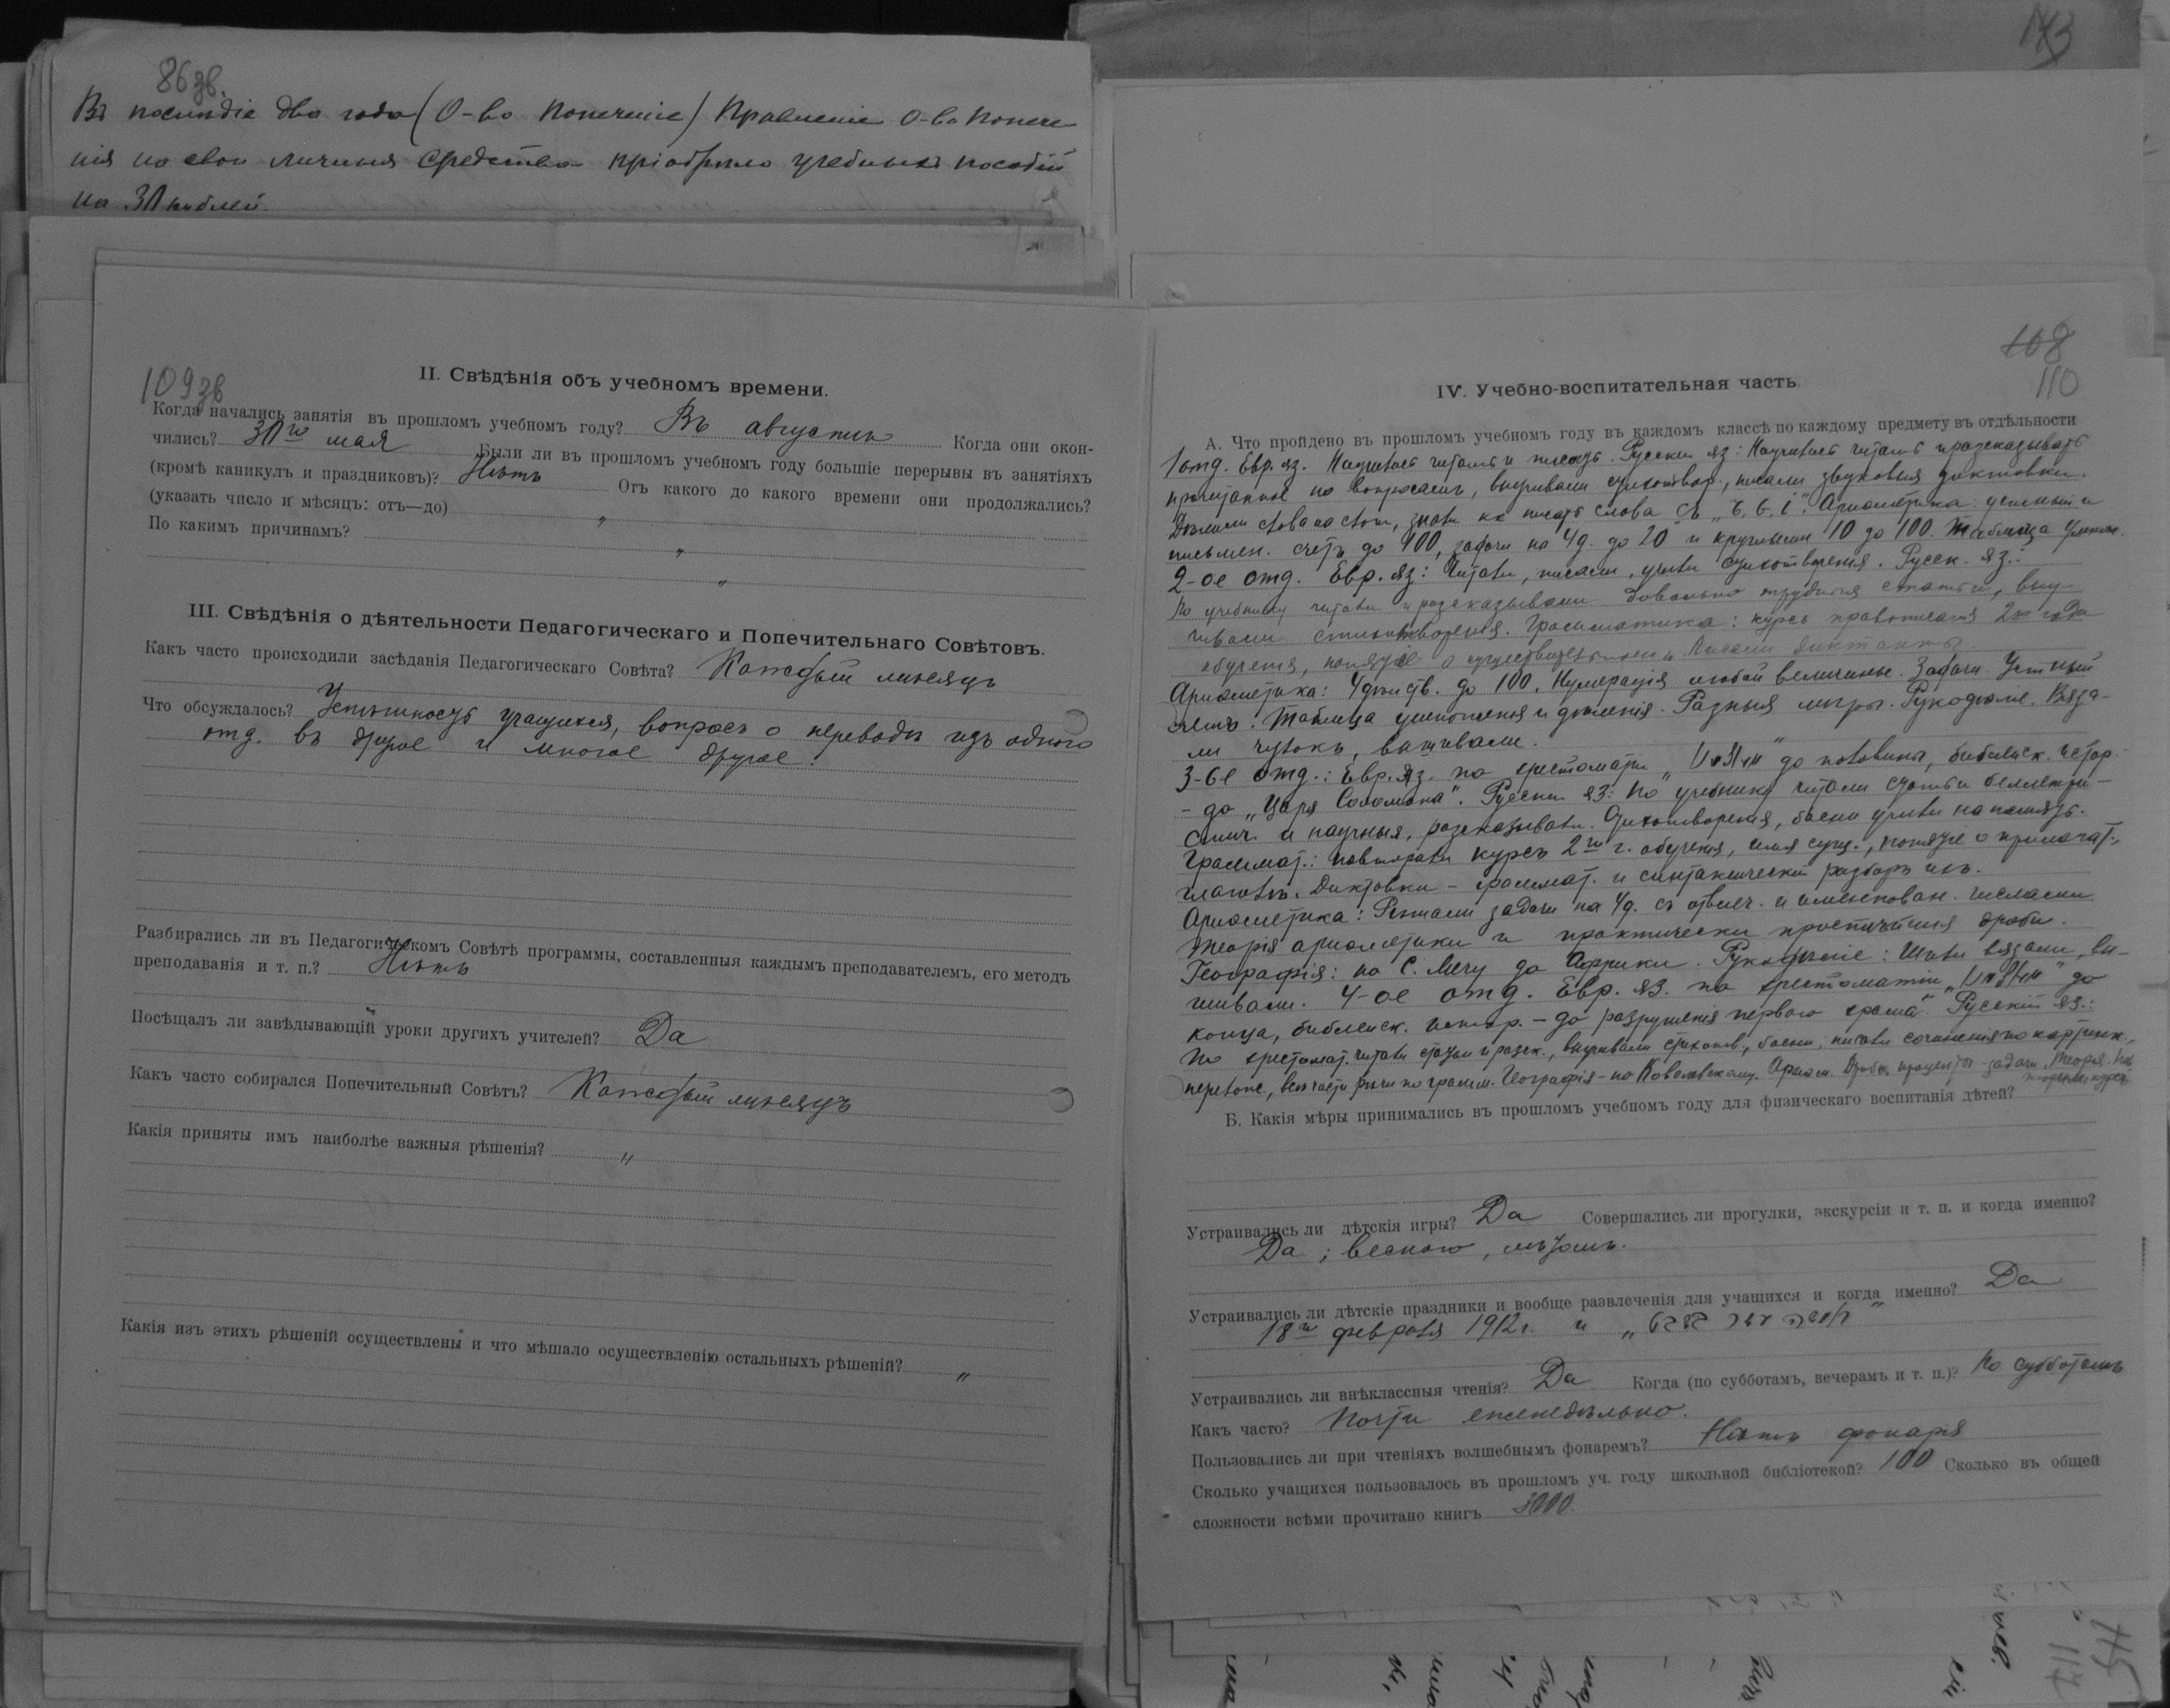 86 зв.
Въ послѣдніе два года (О-во Попеченіе) Правленіе О-ва Попече
нія на свои личныя средства пріобрѣло учебныхъ пособій
на 30 рублей.
109 зв
II. Свѣдѣнія объ учебномъ времени.
Когда начались занятія въ прошломъ учебномъ году? Въ августѣ Когда они окон-
чились? 30го мая Были ли въ прошломъ учебномъ году большіе перерывы въ занятіяхъ
(кромѣ каникулъ и праздниковъ)? Нѣтъ Отъ какого до какого времени они продолжались?
(указать число и мѣсяцъ: отъ—до) "
По какимъ причинамъ? "
"
III. Свѣдѣнія о дѣятельности Педагогическаго и Попечительнаго Совѣтовъ.
Какъ часто происходили засѣданія Педагогическаго Совѣта? Каждый мѣсяцъ
Что обсуждалось? Успѣшность учащихся, вопросъ о переводѣ изъ одного
отд. въ другое и многое другое.
Разбирались ли въ Педагогическомъ Совѣтѣ программы, составленныя каждымъ преподавателемъ, его методъ
преподаванія и т. п.? Нѣтъ
Посѣщалъ ли завѣдывающій уроки другихъ учителей? Да
Какъ часто собирался Попечительный Совѣтъ? Каждый мѣсяцъ
Какія приняты имъ наиболѣе важныя рѣшенія? "
Какія изъ этихъ рѣшеній осуществлены и что мѣшало осуществленію остальныхъ рѣшеній? "
108
110
IV. Учебно-воспитательная часть.
А. Что пройдено въ прошломъ учебномъ году въ каждомъ классѣ по каждому предмету въ отдѣльности
1 отд. Евр. яз. Научились читать и писать. Русский яз: Научились читать и разсказывать
прочитанное по вопросамъ, выучивали стихотвор., писали звуковыя диктовки.
Дѣлили слова на слоги, слова съ „ъ, ь, і". Ариѳметика: устный и
письмен. счетъ до 100, задачи на 4 д. до 20 и круглыми 10 до 100. Таблица умнож.
2-ое отд. Евр. яз: Читали, писали, учили стихотворенія. Русск. яз.:
По учебнику читали и разсказывали довольно трудныя статьи, выу
чивали стихотворенія. Грамматика: курсъ правописанія 2го года
обученія, понятіе о существительномъ. Писали диктанты
Ариѳметика: 4 дѣйств. до 100. Нумерація любой величины. Задачи. Устный
счетъ. Таблица умноженія и дѣленія. Разныя мѣры. Рукодѣліе. Вяза-
ли чулокъ, вышивали.
3-ье отд.: Евр. яз. по хрестоматіи до половины, библейск. истор.
- до „Царя Соломона". Русский яз: По учебнику читали статьи беллетри-
стич. и научныя, разсказывали. Стихотворенія, басни учили на память.
Граммат.: повторяли курсъ 2го г. обученія, имя сущ., понятіе о прилагат.,
глаголѣ. Диктовки - граммат. и синтаксическій разборъ ихъ.
Ариѳметика: Рѣшали задачи на 4 д. съ отвлеч. и именован. числами.
Теорія ариѳметики и практически простѣйшія дроби.
Географія: по С. Мечу до Африки. Рукодѣліе: Шили вязали, вы-
шивали. 4-ое отд. Евр. яз. по хрестоматіи до
конца, библейск. истор. - до разрушенія перваго храма. Русскій яз.:
По хрестомат. читали статьи и разск., выучивали стихотв., басни; писали сочиненія по картинк.,
перелож., всѣ части рѣчи по грамм. Географія - по Ковалевскому. Ариѳм. Дроби, проценты задачи. Теорія.
Б. Какія мѣры принимались въ прошломъ учебномъ году для физическаго воспитанія дѣтей?
Устраивались ли дѣтскія игры? Да Совершались ли прогулки, экскурсіи и т. п. и когда именно?
Да; весною, лѣтомъ.
Устраивались ли дѣтскіе праздники и вообще развлеченія для учащихся и когда именно? Да
18го февраля 1912 г. и „חמשה עשר בשבט"
Устраивались ли внѣклассныя чтенія? Да Когда (по субботамъ, вечерамъ и т. п.)? По субботамъ
Какъ часто? Почти еженедѣльно.
Пользовались ли при чтеніяхъ волшебнымъ фонаремъ? Нѣтъ фонаря
Сколько учащихся пользовалось въ прошломъ уч. году школьной библіотекой? 100 Сколько въ общей
сложности всѣми прочитано книгъ 3000.
117